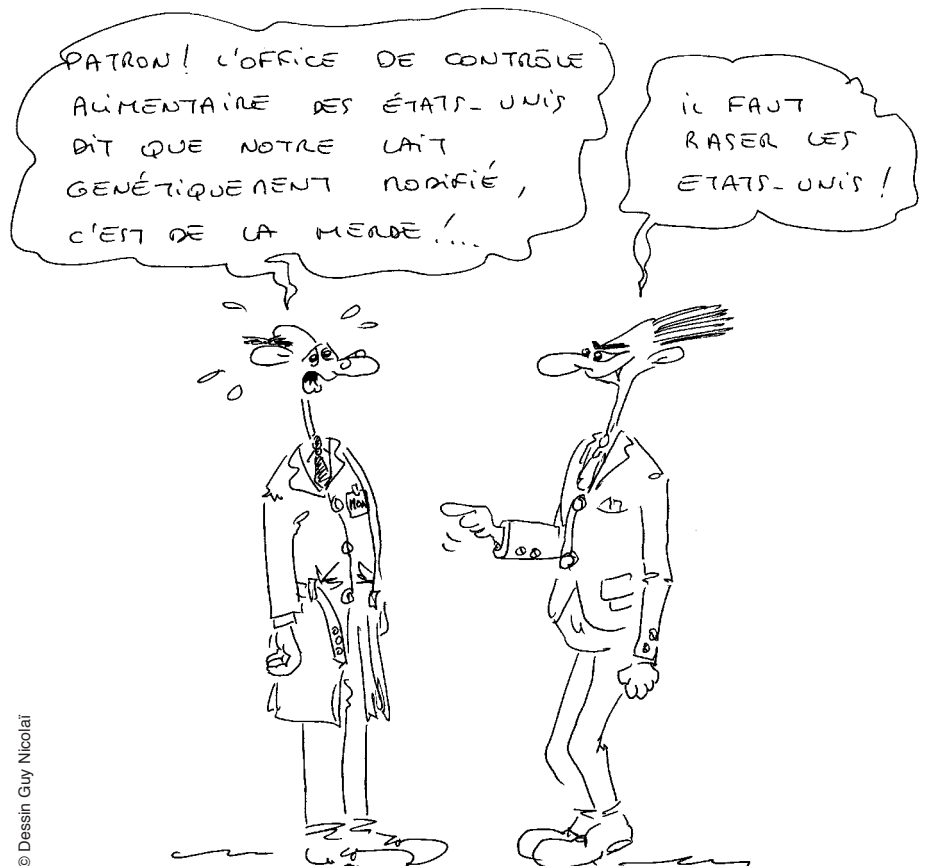 PATRON! L'OFFICE DE CONTRÔLE
ALIMENTAIRE DES ÉTATS-UNIS
DIT QUE NOTRE LAIT
GENÉTIQUEMENT MODIFIÉ,
C'EST DE LA MERDE!...
IL FAUT
RASER LES
ETATS-UNIS!
MON
© Dessin Guy Nicolaï